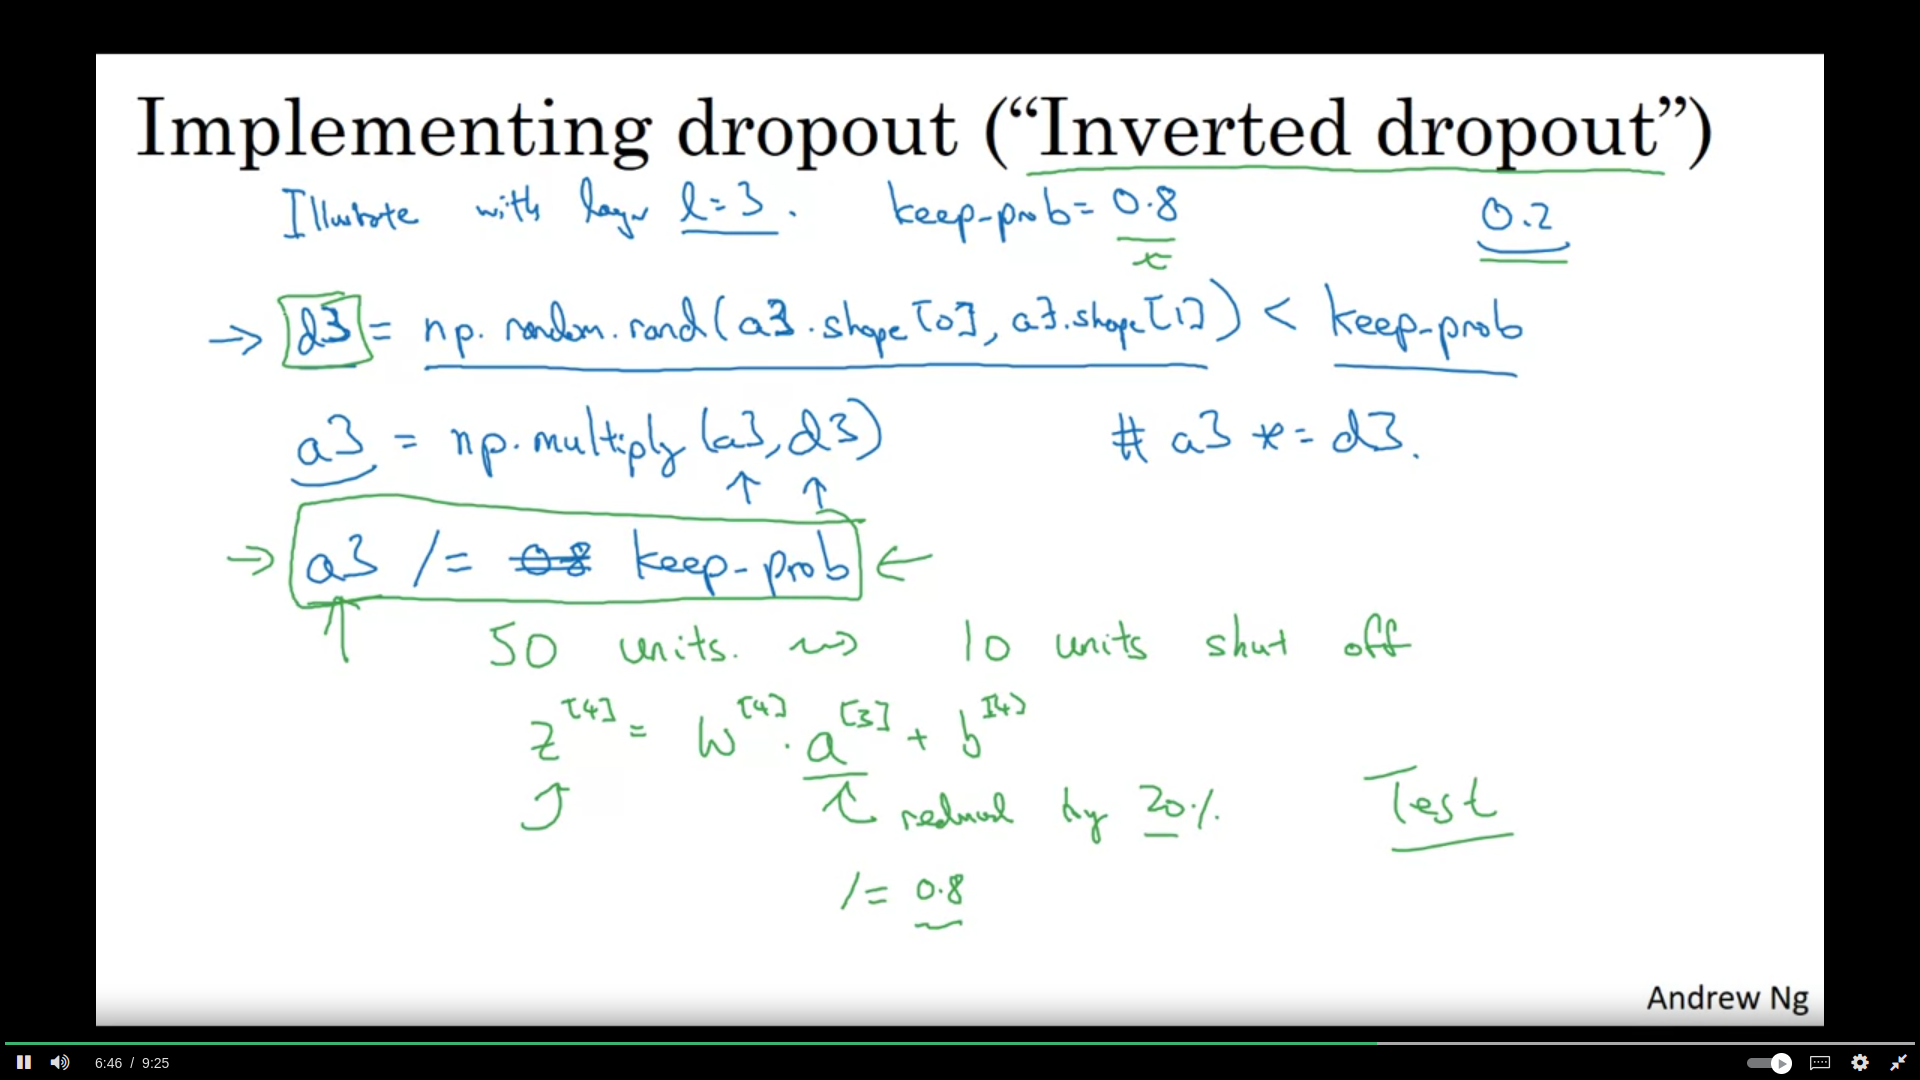 Implementing dropout (“Inverted dropout”)
Illustrate with layer l=3. keep-prob= 0.8 0.2
→ d3 = np.random.rand(a3.shape[0], a3.shape[1]) < keep-prob
a3 = np.multiply(a3, d3) # a3 *= d3.
→ a3 /= 0.8 keep-prob ←
50 units. ⇝ 10 units shut off
z[4] = W[4] . a[3] + b[4]
reduced by 20%. Test
/= 0.8
Andrew Ng
6:46 / 9:25